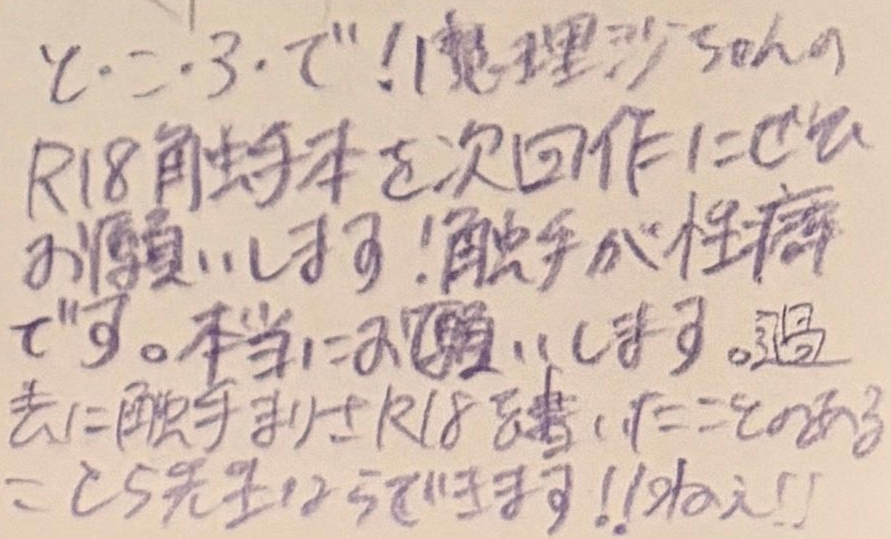 と・こ・ろ・で！魔理沙ちゃんの
R18触手本を次回作にぜひ
お願いします！触手が性癖
です。本当にお願いします。過
去に触手まりさR18を書いたことのある
こころ先生ならできます！！ねぇ！！